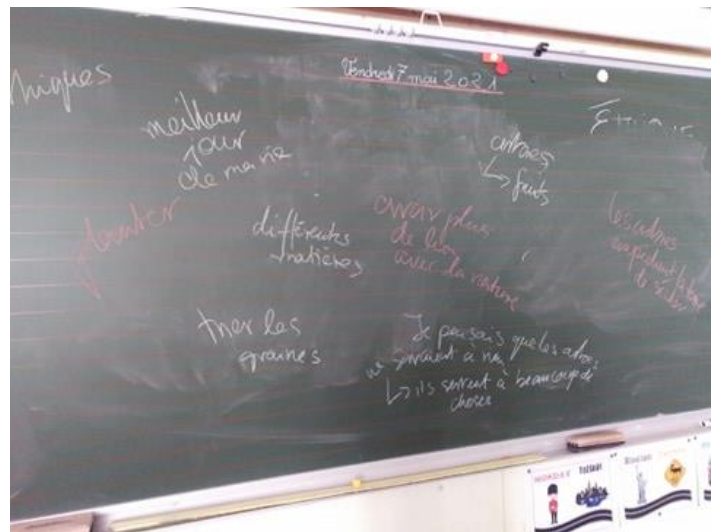 Vendredi 7 mai 2021
meilleur
jour
de ma vie
arbres
↳ fruits
planter
différentes
matières
avoir plus
de lien
avec la nature
les arbres
empêchent la terre
de
trier les
graines
Je pensais que les arbres
ne servaient à rien
↳ ils servent à beaucoup de
choses